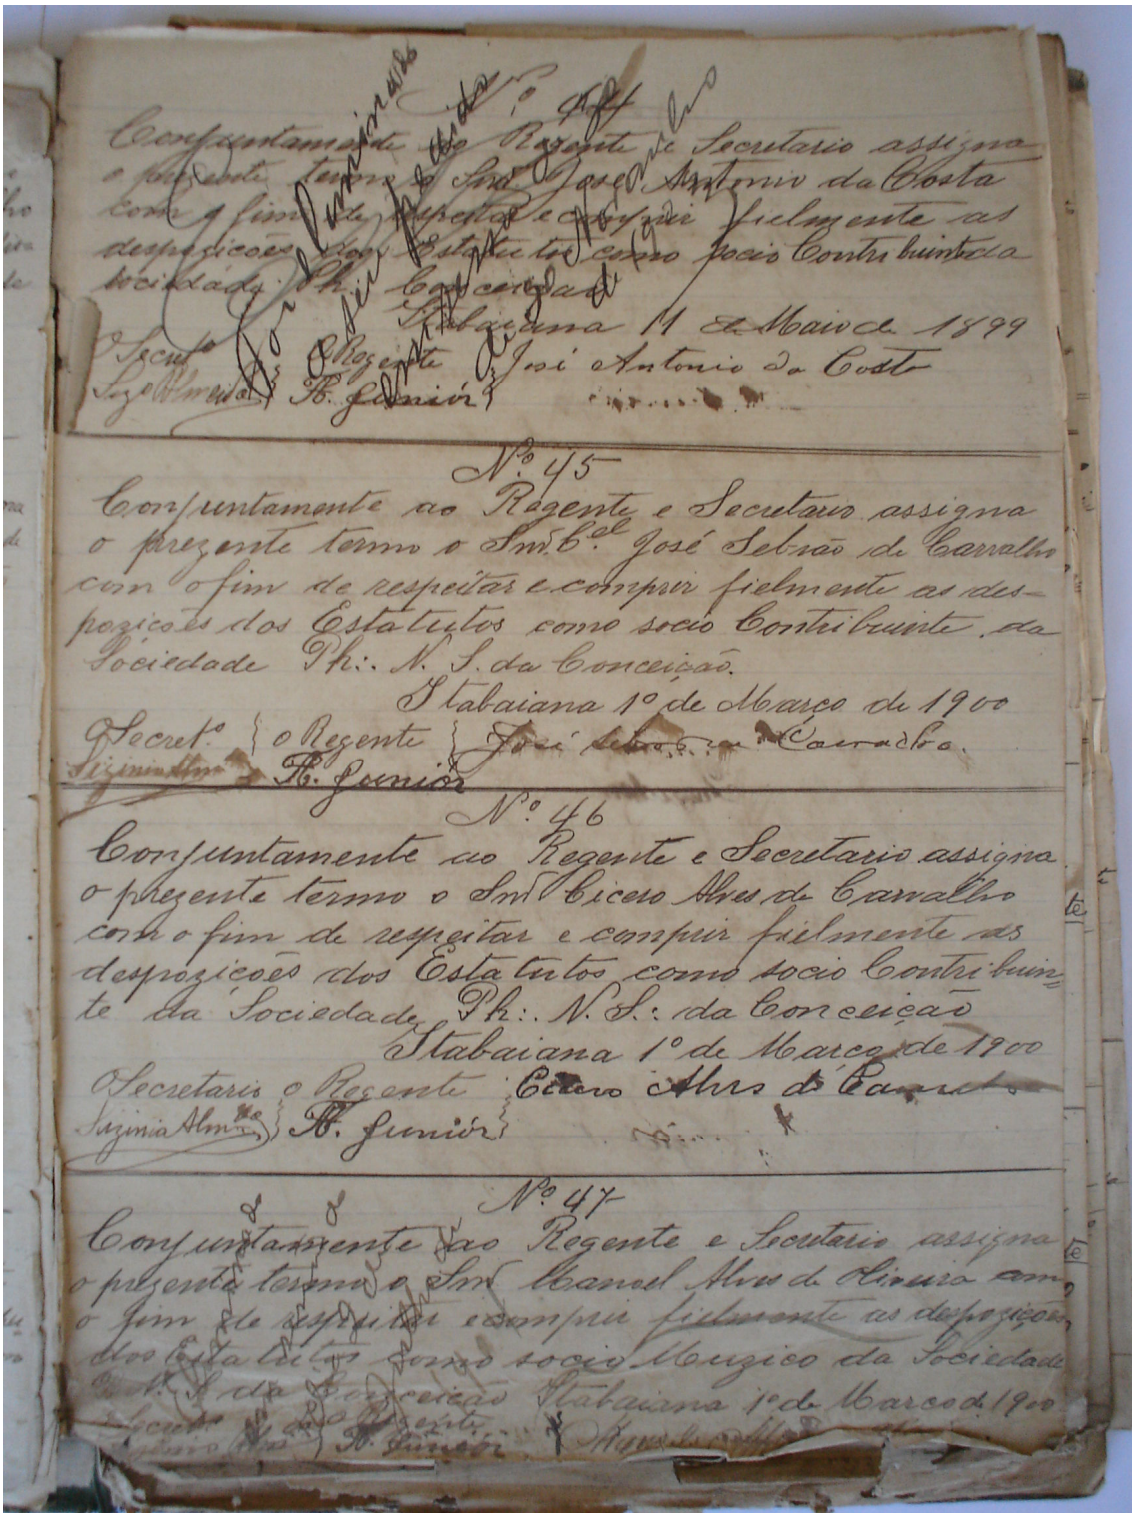 Nº 44
Conjuntamente ao Regente e Secretario assigna
o prezente termo o Snr José Antonio da Costa
com o fim de respeitar e comprir fielmente as
despozicoēs dos Estatutos como socio Contribuinte da
sociedade Ph. Conceição
Itabaiana 11 de Maio de 1899
O Secretº O Regente José Antonio da Costa
Almeida F. Juniór
Foi Eliminado
Nº 45
Conjuntamente ao Regente e Secretario assigna
o prezente termo o Snr. Bel. José Sebrão de Carvalho
com o fim de respeitar e comprir fielmente as des=
pozicoēs dos Estatutos como socio Contribuinte da
Sociedade Ph:. N. S. da Conceição.
Itabaiana 1º de Março de 1900
O Secretº. o Regente José Sebrão de Carvalho.
F. Junior
Nº 46
Conjuntamente ao Regente e Secretario assigna
o prezente termo o Snr Cicero Alves de Carvalho
com o fim de respeitar e comprir fielmente as
despozicoēs dos Estatutos como socio Contribuin=
te da Sociedade Ph:. N. S.: da Conceição
Itabaiana 1º de Março de 1900
O Secretario o Regente Cicero Alves de Carvalho
F. Junior
Nº 47
Conjuntamente ao Regente e Secretario assigna
o prezente termo o Snr Manoel Alves de Oliveira com
o fim de respeitar e comprir fielmente as despozições
dos Estatutos como socio Muzico da Sociedade
N. S. da Conceição Itabaiana 1º de Marco de 1900
o Secretº o Regente
F. Junior